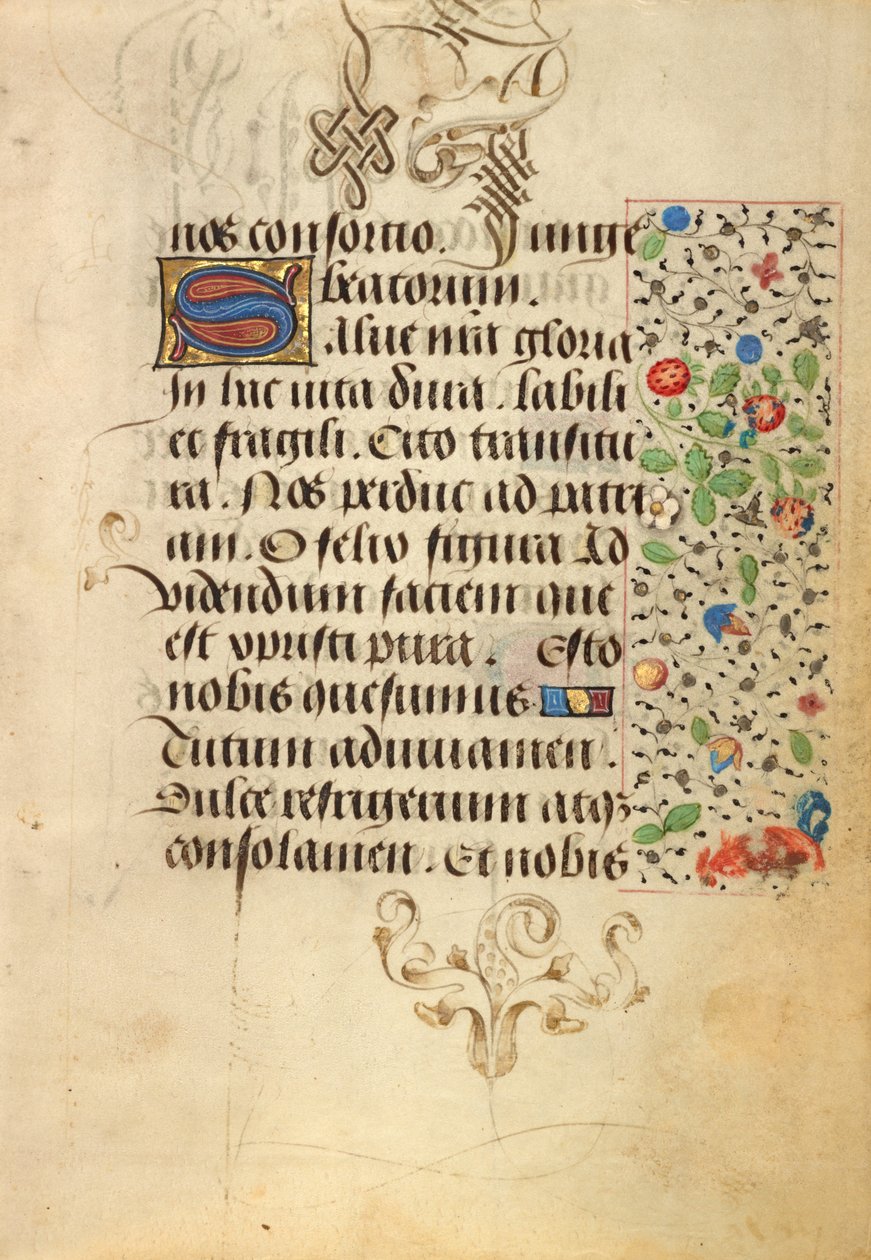 nos consortio. Junge
beatorum.
Salue nr̃a gloria
In hac uita dura. labili
et fragili. Cito transitu
ra. Nos perduc ad patri
am. O felix figura Ad
videndum faciem que
est xpristi pura. Esto
nobis quesumus
Tutum adiuuamen.
Dulce refrigerium atqꝫ
consolamen. Et nobis